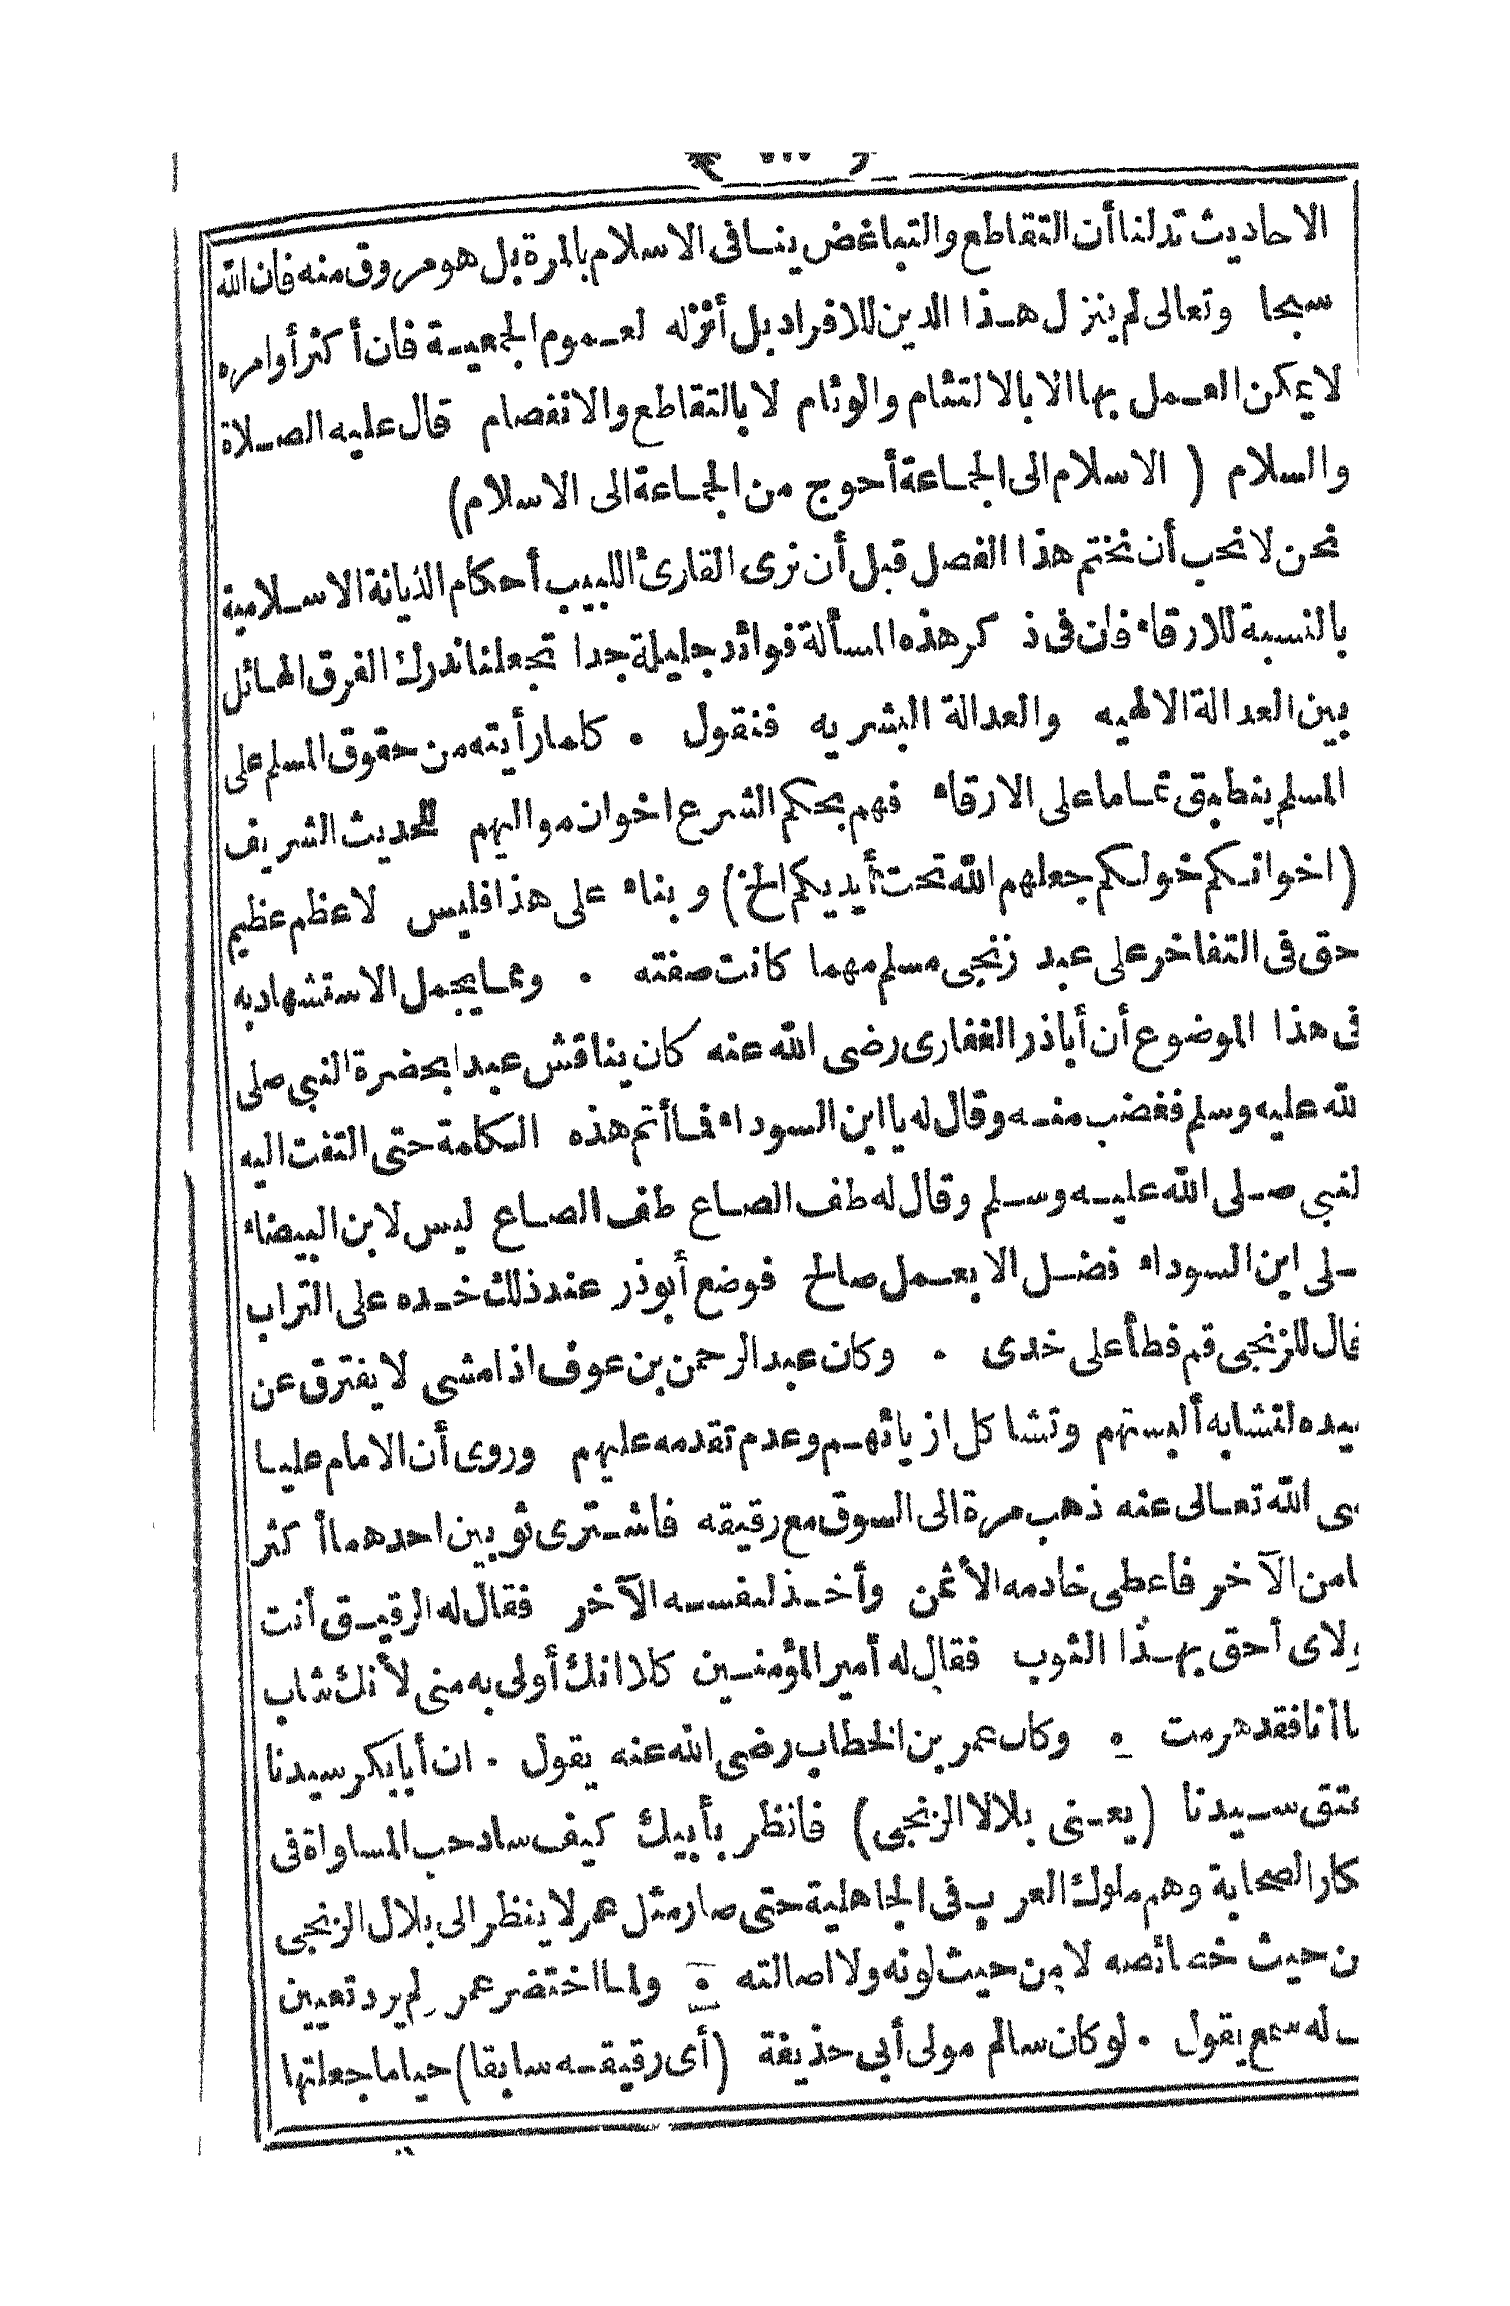 الاحاديث تدلنا أن التقاطع والتباغض ينافى الاسلام بالمرة بل هو مروق منه فان الله
سبحا وتعالى لم ينزل هذا الدين للافراد بل أنزله لعموم الجمعية فان أكثر أوامره
لا يمكن العمل بها الا بالالتئام والوئام لا بالتقاطع والانفصام قال عليه الصلاة
والسلام ( الاسلام الى الجماعة أحوج من الجماعة الى الاسلام)
نحن لا نحب أن نختم هذا الفصل قبل أن نرى القارئ اللبيب أحكام الديانة الاسلامية
بالنسبة للارقاء فان فى ذكر هذه المسألة فوائد جليلة جدا تجعلنا ندرك الفرق الهائل
بين العدالة الالهيه والعدالة البشريه فنقول . كلما رأيته من حقوق المسلم على
المسلم ينطبق تماما على الارقاء فهم بحكم الشرع اخوان مواليهم للحديث الشريف
(اخوانكم خولكم جعلهم الله تحت أيديكم الخ) وبناء على هذا فليس لاعظم عظيم
حق فى التفاخر على عبد زنجى مسلم مهما كانت صفته . ومما يجمل الاستشهاد به
فى هذا الموضوع أن أباذر الغفارى رضى الله عنه كان يناقش عبدا بحضرة النبى صلى
لله عليه وسلم فغضب منه وقال له يا ابن السوداء فما أتم هذه الكلمة حتى التفت اليه
لنبى صلى الله عليه وسلم وقال له طف الصاع طف الصاع ليس لابن البيضاء
لى ابن السوداء فضل الا بعمل صالح فوضع أبوذر عند ذلك خده على التراب
قال للزنجى قم فطأ على خدى . وكان عبد الرحمن بن عوف اذا مشى لا يفترق عن
بيده لتشابه ألبستهم وتشاكل ازيائهم وعدم تقدمه عليهم وروى أن الامام عليا
ضى الله تعالى عنه ذهب مرة الى السوق مع رقيقه فاشترى ثوبين احدهما أكثر
امن الآخر فأعطى خادمه الأثمن وأخذ لنفسه الآخر فقال له الرقيق أنت
ولاى أحق بهذا الثوب فقال له أمير المؤمنين كلا انك أولى به منى لأنك شاب
ا أنا فقد هرمت . وكان عمر بن الخطاب رضى الله عنه يقول . ان أبا بكر سيدنا
عتق سيدنا (يعنى بلالا الزنجى) فانظر بأبيك كيف ساد حب المساواة فى
كار الصحابة وهم ملوك العرب فى الجاهلية حتى صار مثل عمر لا ينظر الى بلال الزنجى
ن حيث خصائصه لا من حيث لونه ولا اصالته . ولما اختضر عمر لم يرد تعيين
له سمع يقول . لو كان سالم مولى أبى حذيفة (أى رقيقه سابقا) حيا ما جعلتها